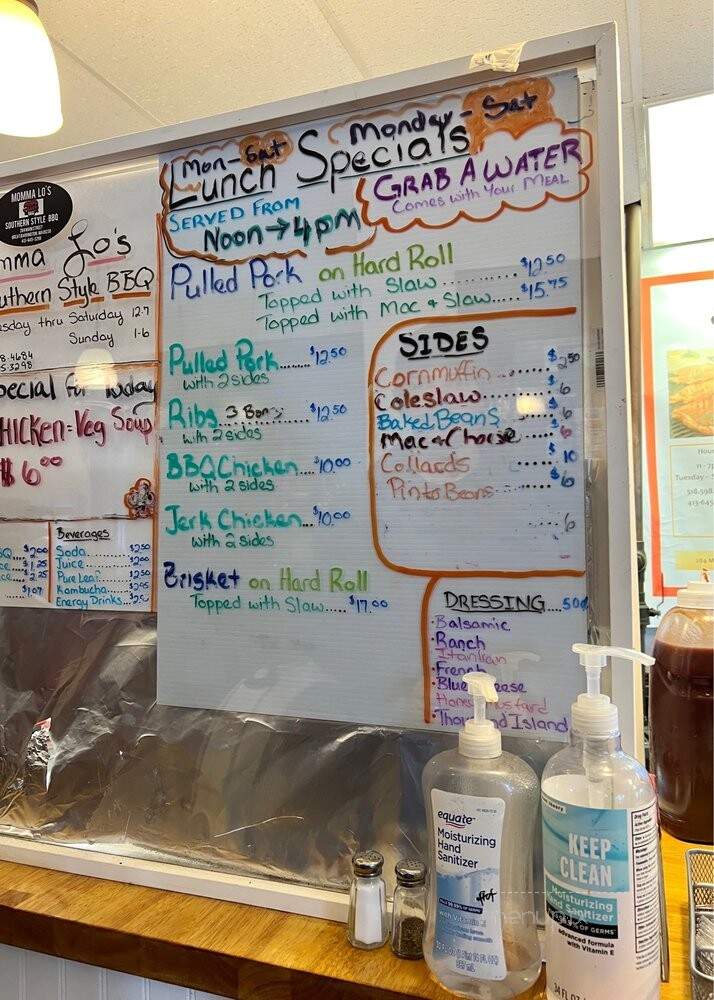 MOMMA LO'S
SOUTHERN STYLE BBQ
Lo's
Style BBQ
thru Saturday 12-7
Sunday 1-6
pecial for Today
HICKEN-Veg Soup
$6.00
Beverages
Soda $2.50
Juice $2.00
Pure Leaf
Kombucha
Energy Drinks
Mon-Sat
Monday-Sat
Lunch Specials
SERVED FROM
Noon→4pm
GRAB A WATER
Comes with Your MEAL
Pulled Pork on Hard Roll
Topped with Slaw ........... $12.50
Topped with Mac & Slaw..... $15.75
Pulled Pork....... $12.50
with 2 sides
Ribs 3 Bones $12.50
with 2 sides
BBQ Chicken.... $10.00
with 2 sides
Jerk Chicken... $10.00
with 2 sides
Brisket on Hard Roll
Topped with Slaw..... $17.00
SIDES
Cornmuffin ....... $2.50
Coleslaw ..... $6
Baked Beans ..... 6
Mac & Cheese ..... 6
Collards ..... $10
Pinto Beans ..... $6
..... 6
DRESSING....50¢
·Balsamic
·Ranch
Italian
·French
·Blue Cheese
Honey Mustard
·Thousand Island
equate
Moisturizing
Hand
Sanitizer
with Vitamin E
KEEP
CLEAN
Moisturizing
Hand Sanitizer
OF GERMS
advanced formula
with Vitamin E